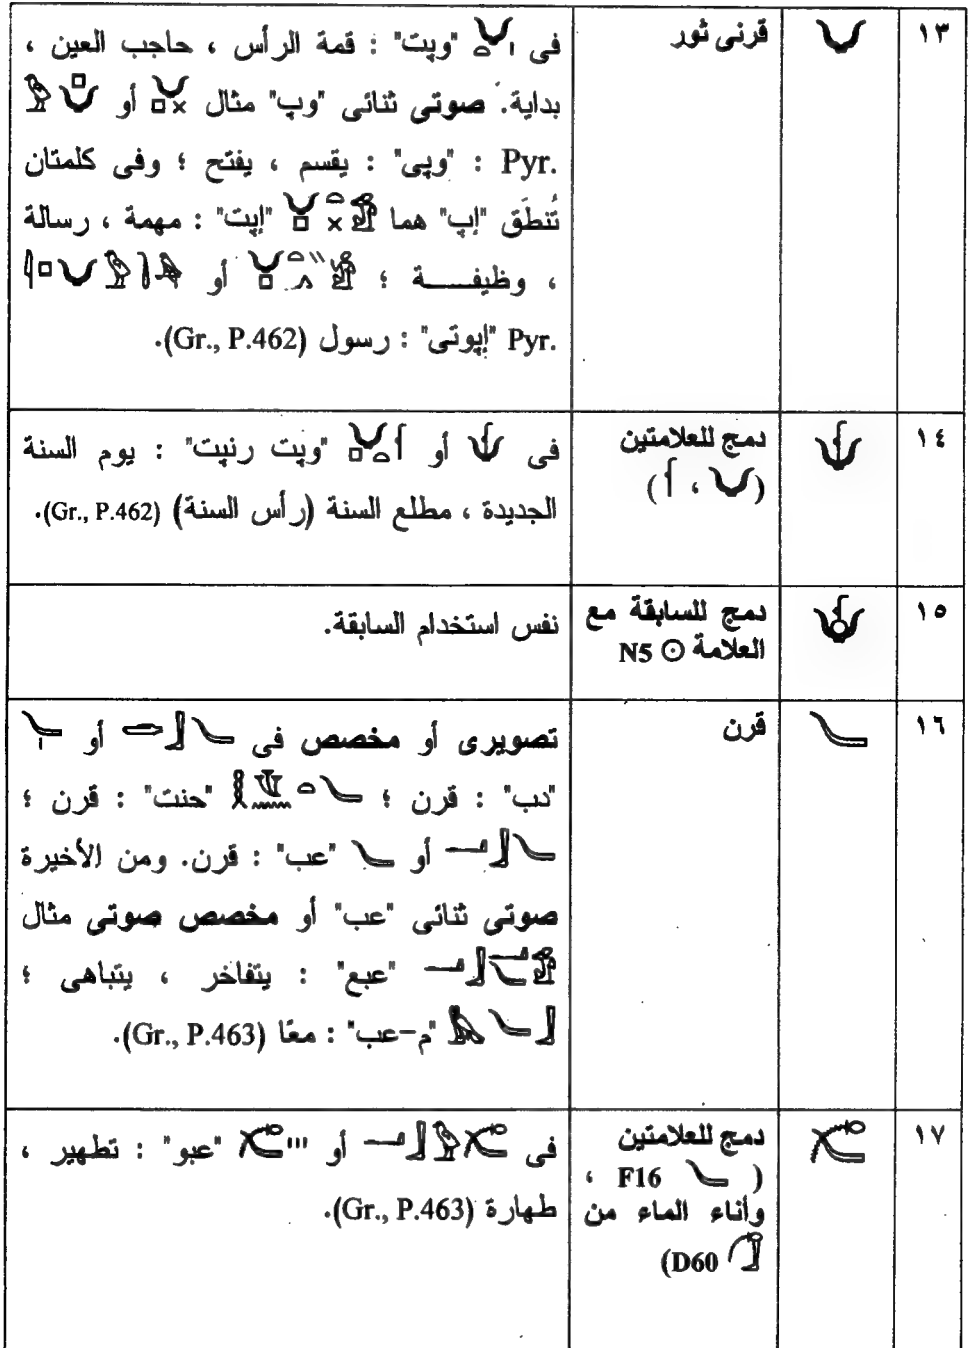 ١٣ قرنى ثور فى "وپت" : قمة الرأس ، حاجب العين ،
بداية. صوتى ثنائى "وپ" مثال أو
Pyr. : "وپى" : يقسم ، يفتح ؛ وفى كلمتان
تُنطَق "إپ" هما "إپت" : مهمة ، رسالة
، وظيفـــة ؛ أو
Pyr. "إپوتى" : رسول (Gr., P.462).
١٤ دمج للعلامتين
( ، )
فى أو "وپت رنپت" : يوم السنة
الجديدة ، مطلع السنة (رأس السنة) (Gr., P.462).
١٥ دمج للسابقة مع
العلامة N5
نفس استخدام السابقة.
١٦ قرن تصويرى أو مخصص فى أو
"دب" : قرن ؛ "حنت" : قرن ؛
أو "عب" : قرن. ومن الأخيرة
صوتى ثنائى "عب" أو مخصص صوتى مثال
"عبع" : يتفاخر ، يتباهى ؛
"م-عب" : معًا (Gr., P.463).
١٧ دمج للعلامتين
( F16 ،
وأناء الماء من
D60)
فى أو "عبو" : تطهير ،
طهارة (Gr., P.463).